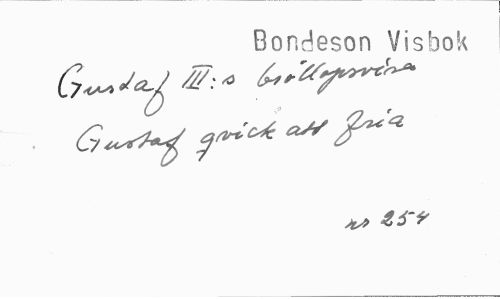 Bondeson Visbok
Gustaf III:s bröllopsvisa
Gustaf gvick att fria
nr 254